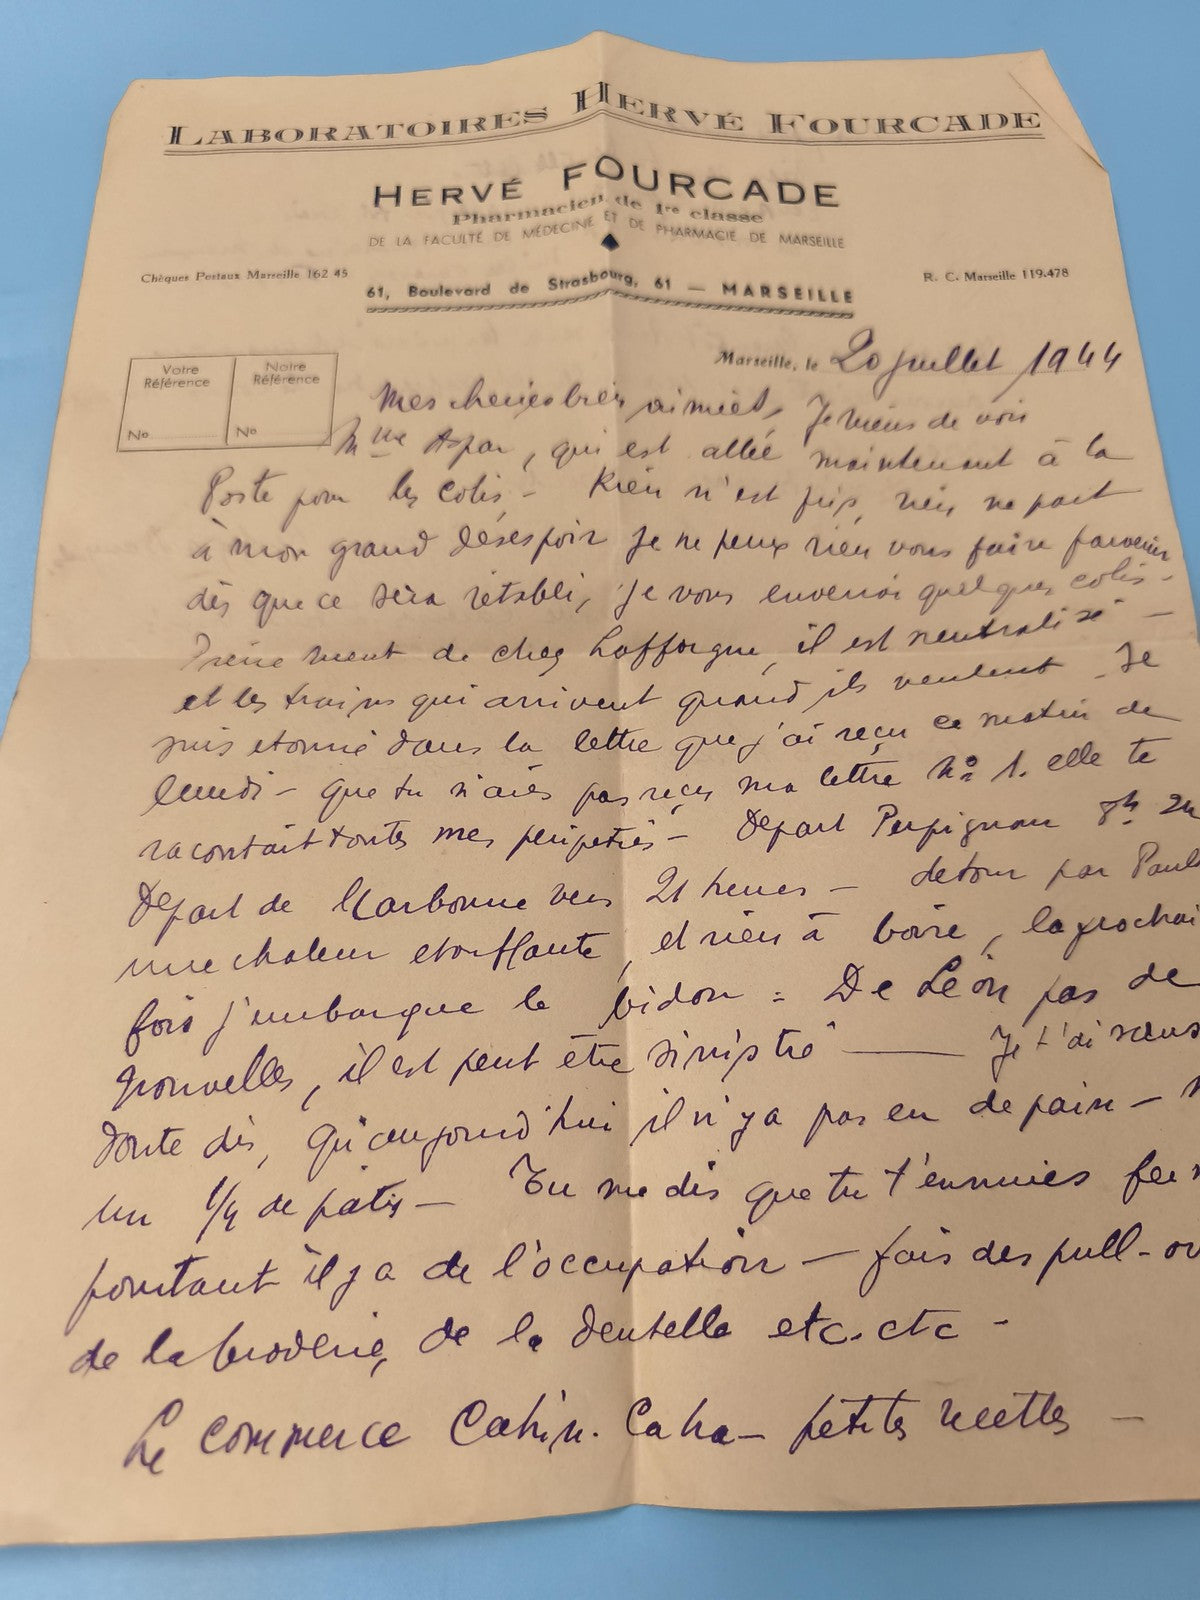 LABORATOIRES HERVÉ FOURCADE
HERVÉ FOURCADE
Pharmacien de 1re classe
DE LA FACULTÉ DE MÉDECINE ET DE PHARMACIE DE MARSEILLE
Chèques Postaux Marseille 162 45
R. C. Marseille 119.478
61, Boulevard de Strasbourg, 61 — MARSEILLE
Votre Référence
Notre Référence
No
No
Marseille, le 20 juillet 1944
Mes cheries bien aimiés, Je viens de voir
Mme Aspar, qui est allée maintenant à la
Poste pour les colis - Rien n'est pris, rien ne part
à mon grand désespoir je ne peux rien vous faire parvenir
dès que ce sera rétabli, je vous enverrai quelques colis -
ment de chez Lafforgue, il est neutralisé -
et les trains qui arrivent quand ils veulent - Je
suis etonné dans la lettre que j'ai reçu ce matin de
lundi - que tu n'aies pas reçu ma lettre No 1. elle te
racontait toutes mes peripeties - Depart Perpignan 8h 20
Depart de Narbonne vers 21 heures - detour par
une chaleur etouffante, et rien à boire, la
fois j'embarque le bidon = De Léon pas de
nouvelles, il est peut être sinistré — Je t'ai sans
doute dis, qu'aujourd'hui il n'y a pas eu de pain -
un 1/4 de pates - Tu me dis que tu t'ennuies
pourtant il y a de l'occupation - fais des pull-ov
de la broderie, de la dentelle etc. etc -
Le commerce Cahin. Caha - petites recettes -